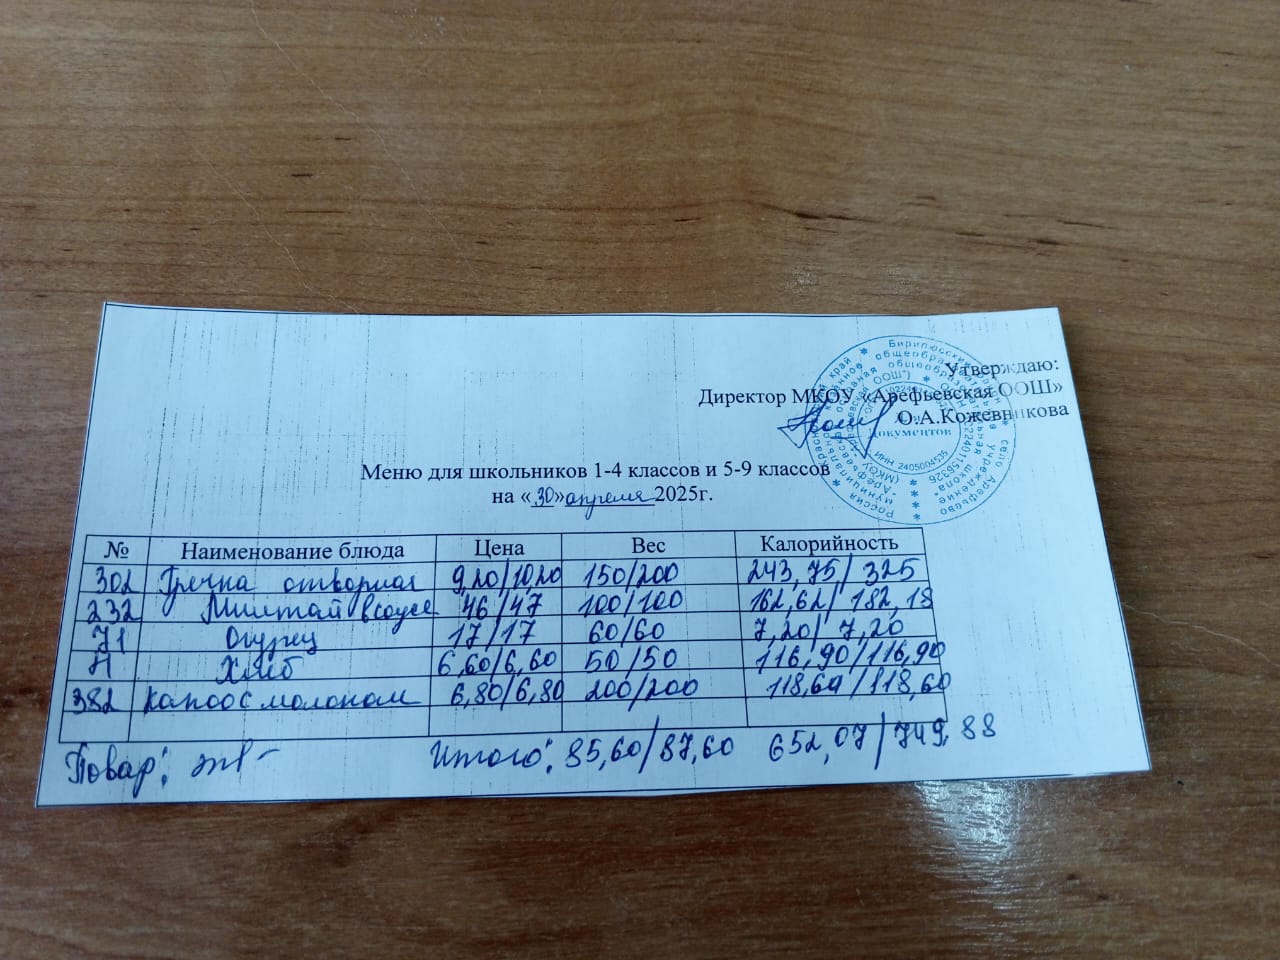 Утверждаю:
Директор МКОУ «Арефьевская ООШ»
О.А.Кожевникова
Документов
ИНН 2405004535
Меню для школьников 1-4 классов и 5-9 классов
на «30» апреля 2025г.
№ Наименование блюда Цена Вес Калорийность
302 Гречка отворная 9,20/10,20 150/200 243,75/325
232 Минтай в соусе 46/47 100/100 162,62/182,18
71 Огурец 17/17 60/60 7,20/7,20
Н Хлеб 6,60/6,60 50/50 116,90/116,90
382 какао с молоком 6,80/6,80 200/200 118,60/118,60
Повар: Итого: 85,60/87,60 652,07/749,88